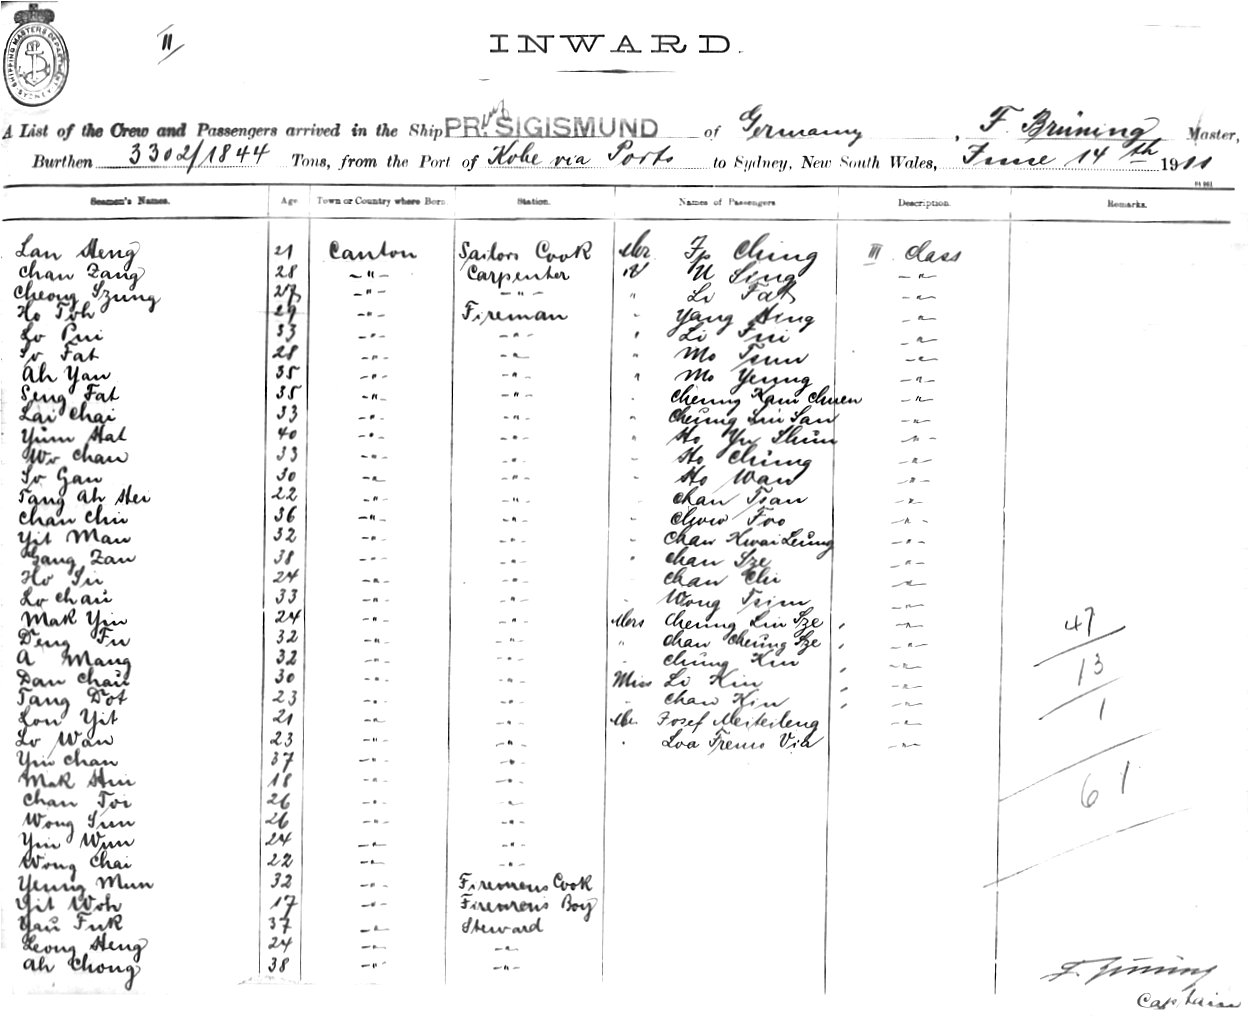 II
INWARD.
SHIPPING MASTERS DEPARTMENT SYDNEY
A List of the Crew and Passengers arrived in the Ship PR. SIGISMUND of Germany, F. Brüning Master,
Burthen 3302/1844 Tons, from the Port of Kobe via Ports to Sydney, New South Wales, June 14th 1911
Seamen's Names. Age Town or Country where Born Station. Names of Passengers Description. Remarks.
Lan Heng 21 Canton Sailors Cook Mr Ip Ching III Class
Chan Zang 28 -"- Carpenter " U Sing -"-
Cheong Szung 27 -"- -"- " Li Fat -"-
Ho Toh 29 -"- Fireman " Yang Hing -"-
Lo Pui 33 -"- -"- " Li Fui -"-
So Fat 28 -"- -"- " Mo Tsun -"-
Ah Yan 35 -"- -"- " Mo Yeung -"-
Seng Fat 35 -"- -"- " Cheung Kam Chuen -"-
Lai Chai 33 -"- -"- " Cheung Lui San -"-
Yüm Hat 40 -"- -"- " Ho Yu Shün -"-
Wo Chan 33 -"- -"- " Ho Chüng -"-
So Gan 30 -"- -"- " Ho Wan -"-
Tang Ah Hei 22 -"- -"- Chan Tsan -"-
Chan Chu 36 -"- -"- " Chow Foo -"-
Yit Man 32 -"- -"- " Chan Kwai Leung -"-
Gang Zan 38 -"- -"- " Chan Sze -"-
Ho Su 24 -"- -"- Chan Chi -"-
Lo Chau 33 -"- -"- " Wong Tsim -"-
Mak Yin 24 -"- -"- Mrs Cheung Lin Sze , -"- 47
Deng Fu 32 -"- -"- " Chan Cheung Sze , -"-
A Mang 32 -"- -"- " Chüng Kin , -"- 13
Dan Chau 30 -"- -"- Miss Li Kin , -"-
Tang Dot 23 -"- -"- " Chan Kin , -"- 1
Lou Yit 21 -"- -"- Mr. Josef -"-
Lo Wan 23 -"- -"- " Loa Via -"-
Yin Chan 37 -"- -"-
Mak Hin 18 -"- -"- 61
Chan Toi 26 -"- -"-
Wong Sun 26 -"- -"-
Yin Wun 24 -"- -"-
Wong Chai 22 -"- -"-
Yeung Mun 32 -"- Firemens Cook
Yit Woh 17 -"- Firemens Boy
Yau Fuk 37 -"- Steward
Leong Heng 24 -"- -"-
Ah Chong 38 -"- -"-
F. Brüning
Captain